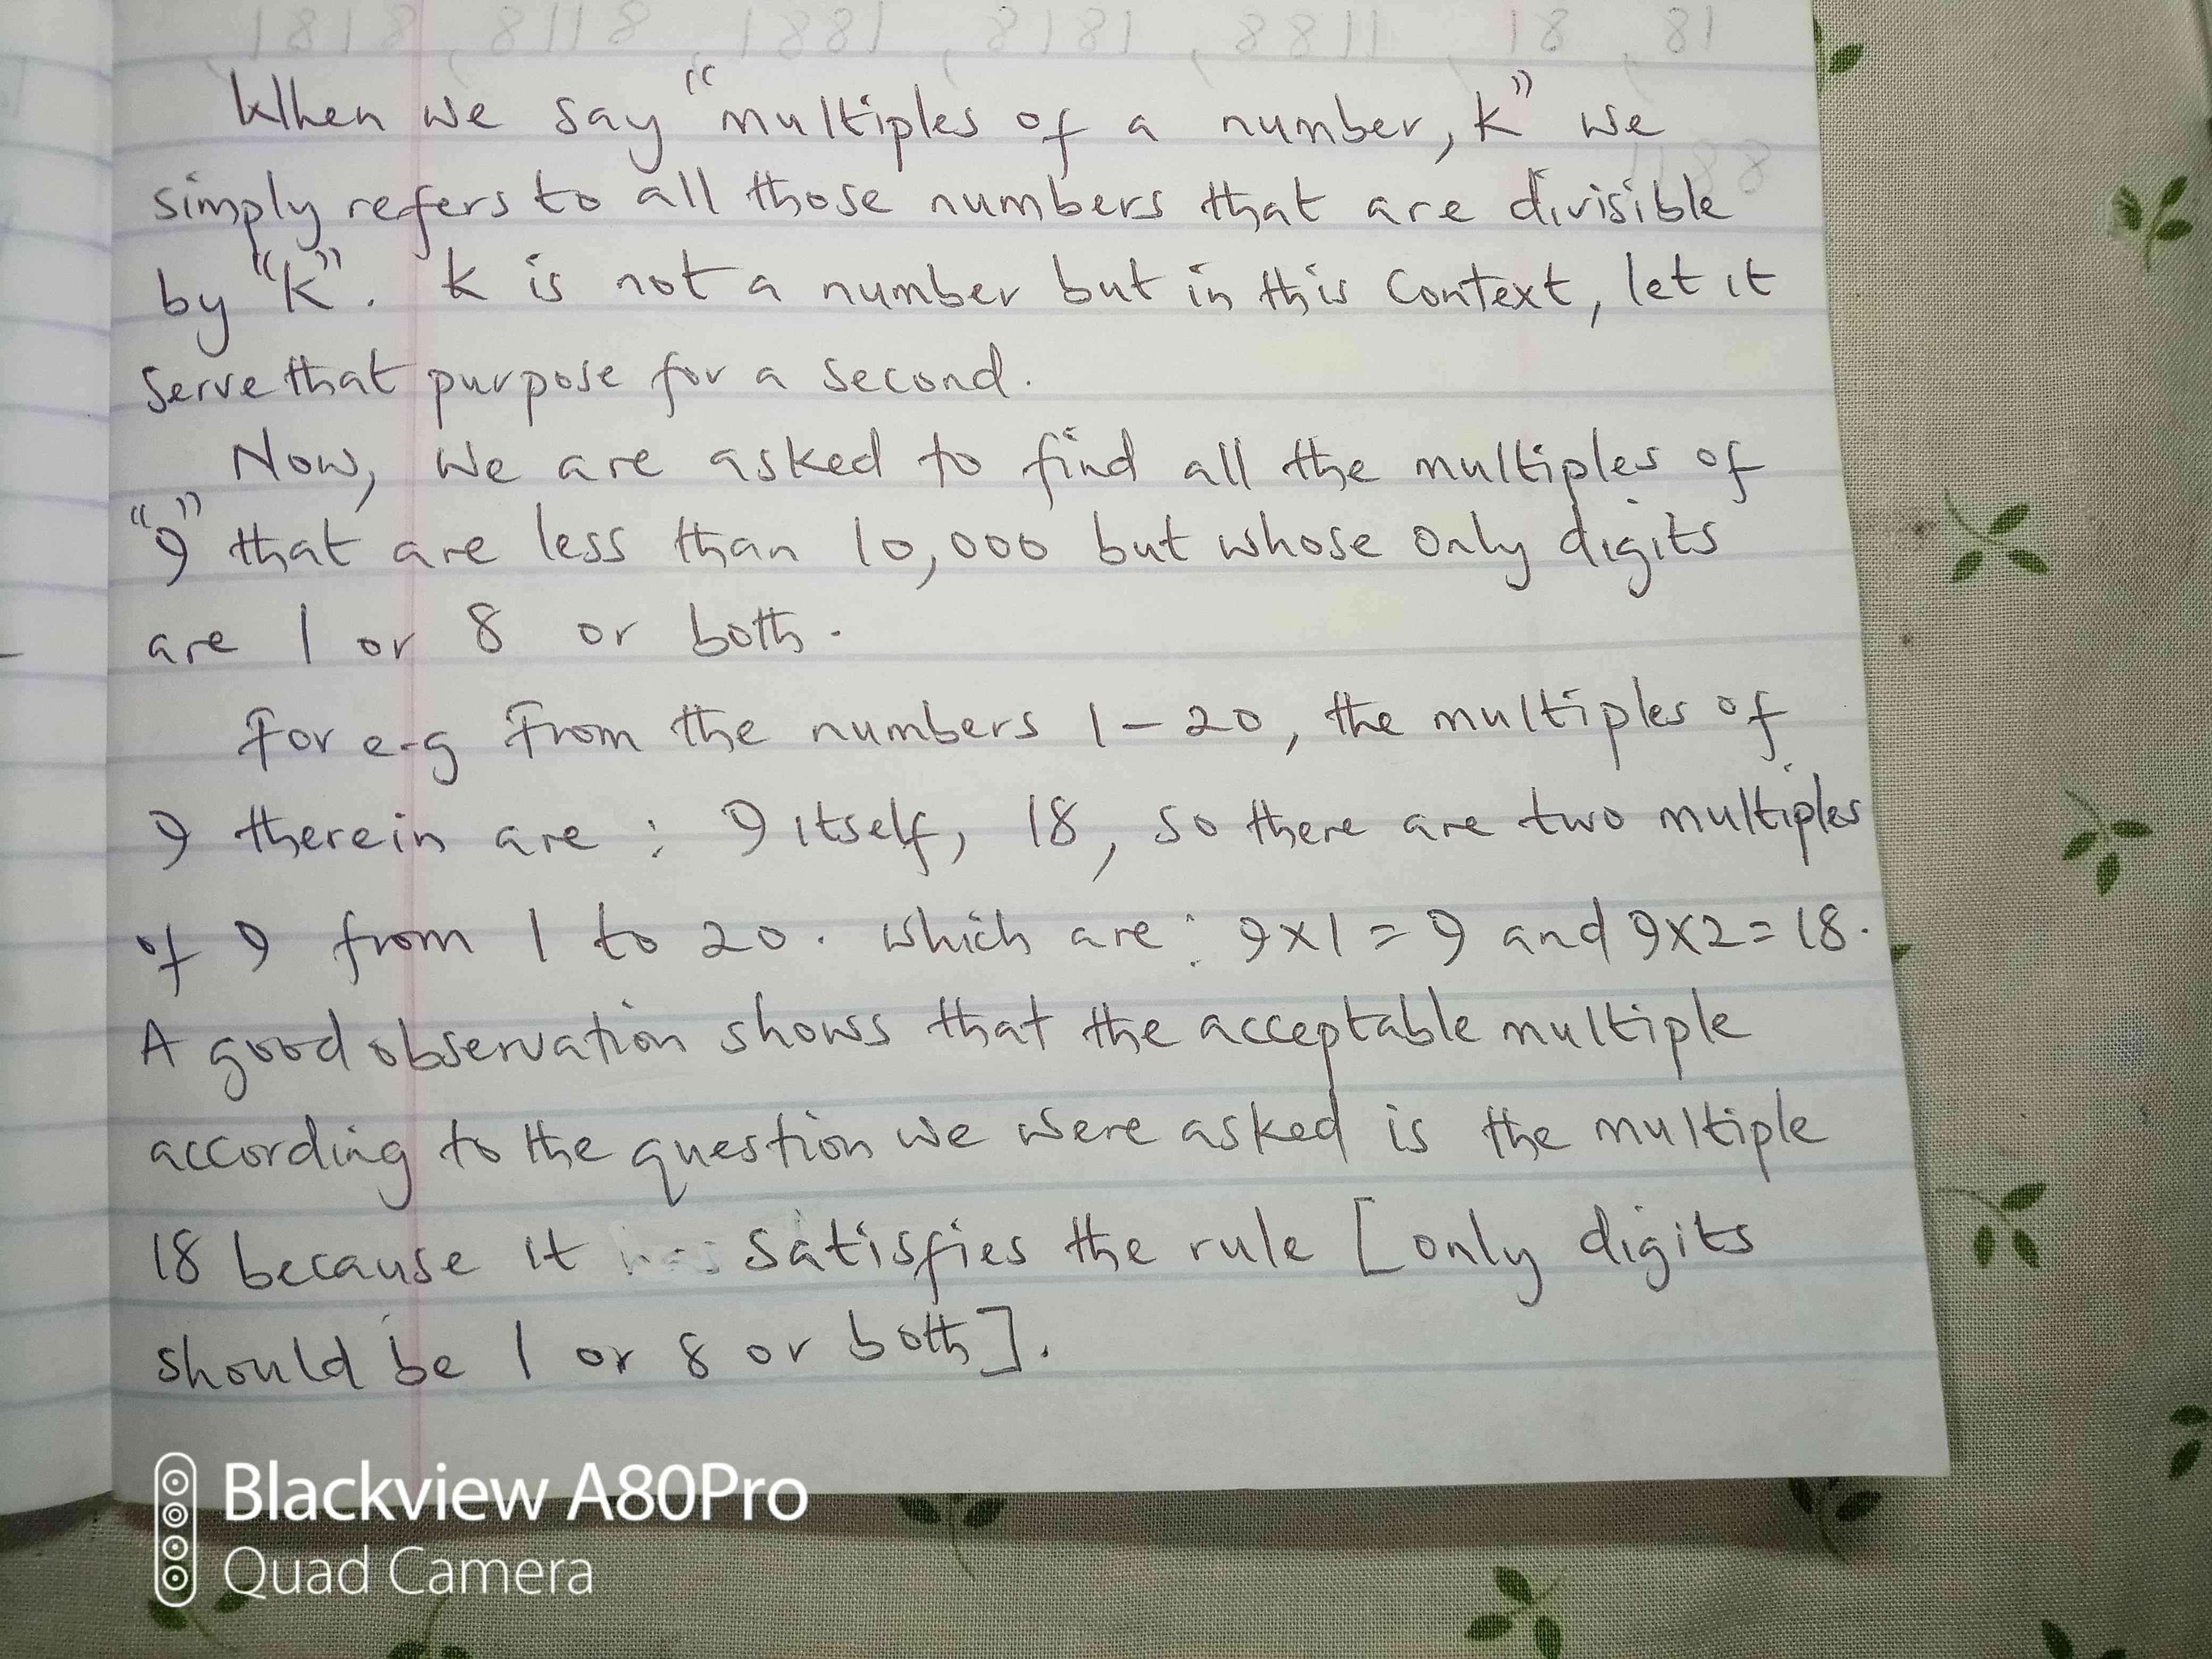 1818, 8118, 1881, 8181, 8811, 18, 81
1188
When we say "multiples of a number, k" we
simply refers to all those numbers that are divisible
by "k". k is not a number but in this context, let it
serve that purpose for a second.
Now, we are asked to find all the multiples of
"9" that are less than 10,000 but whose only digits
are 1 or 8 or both.
For e-g From the numbers 1-20, the multiples of
9 therein are: 9 itself, 18, so there are two multiples
of 9 from 1 to 20. which are: 9x1=9 and 9x2=18.
A good observation shows that the acceptable multiple
according to the question we were asked is the multiple
18 because it satisfies the rule [only digits
should be 1 or 8 or both].
Blackview A80Pro
Quad Camera